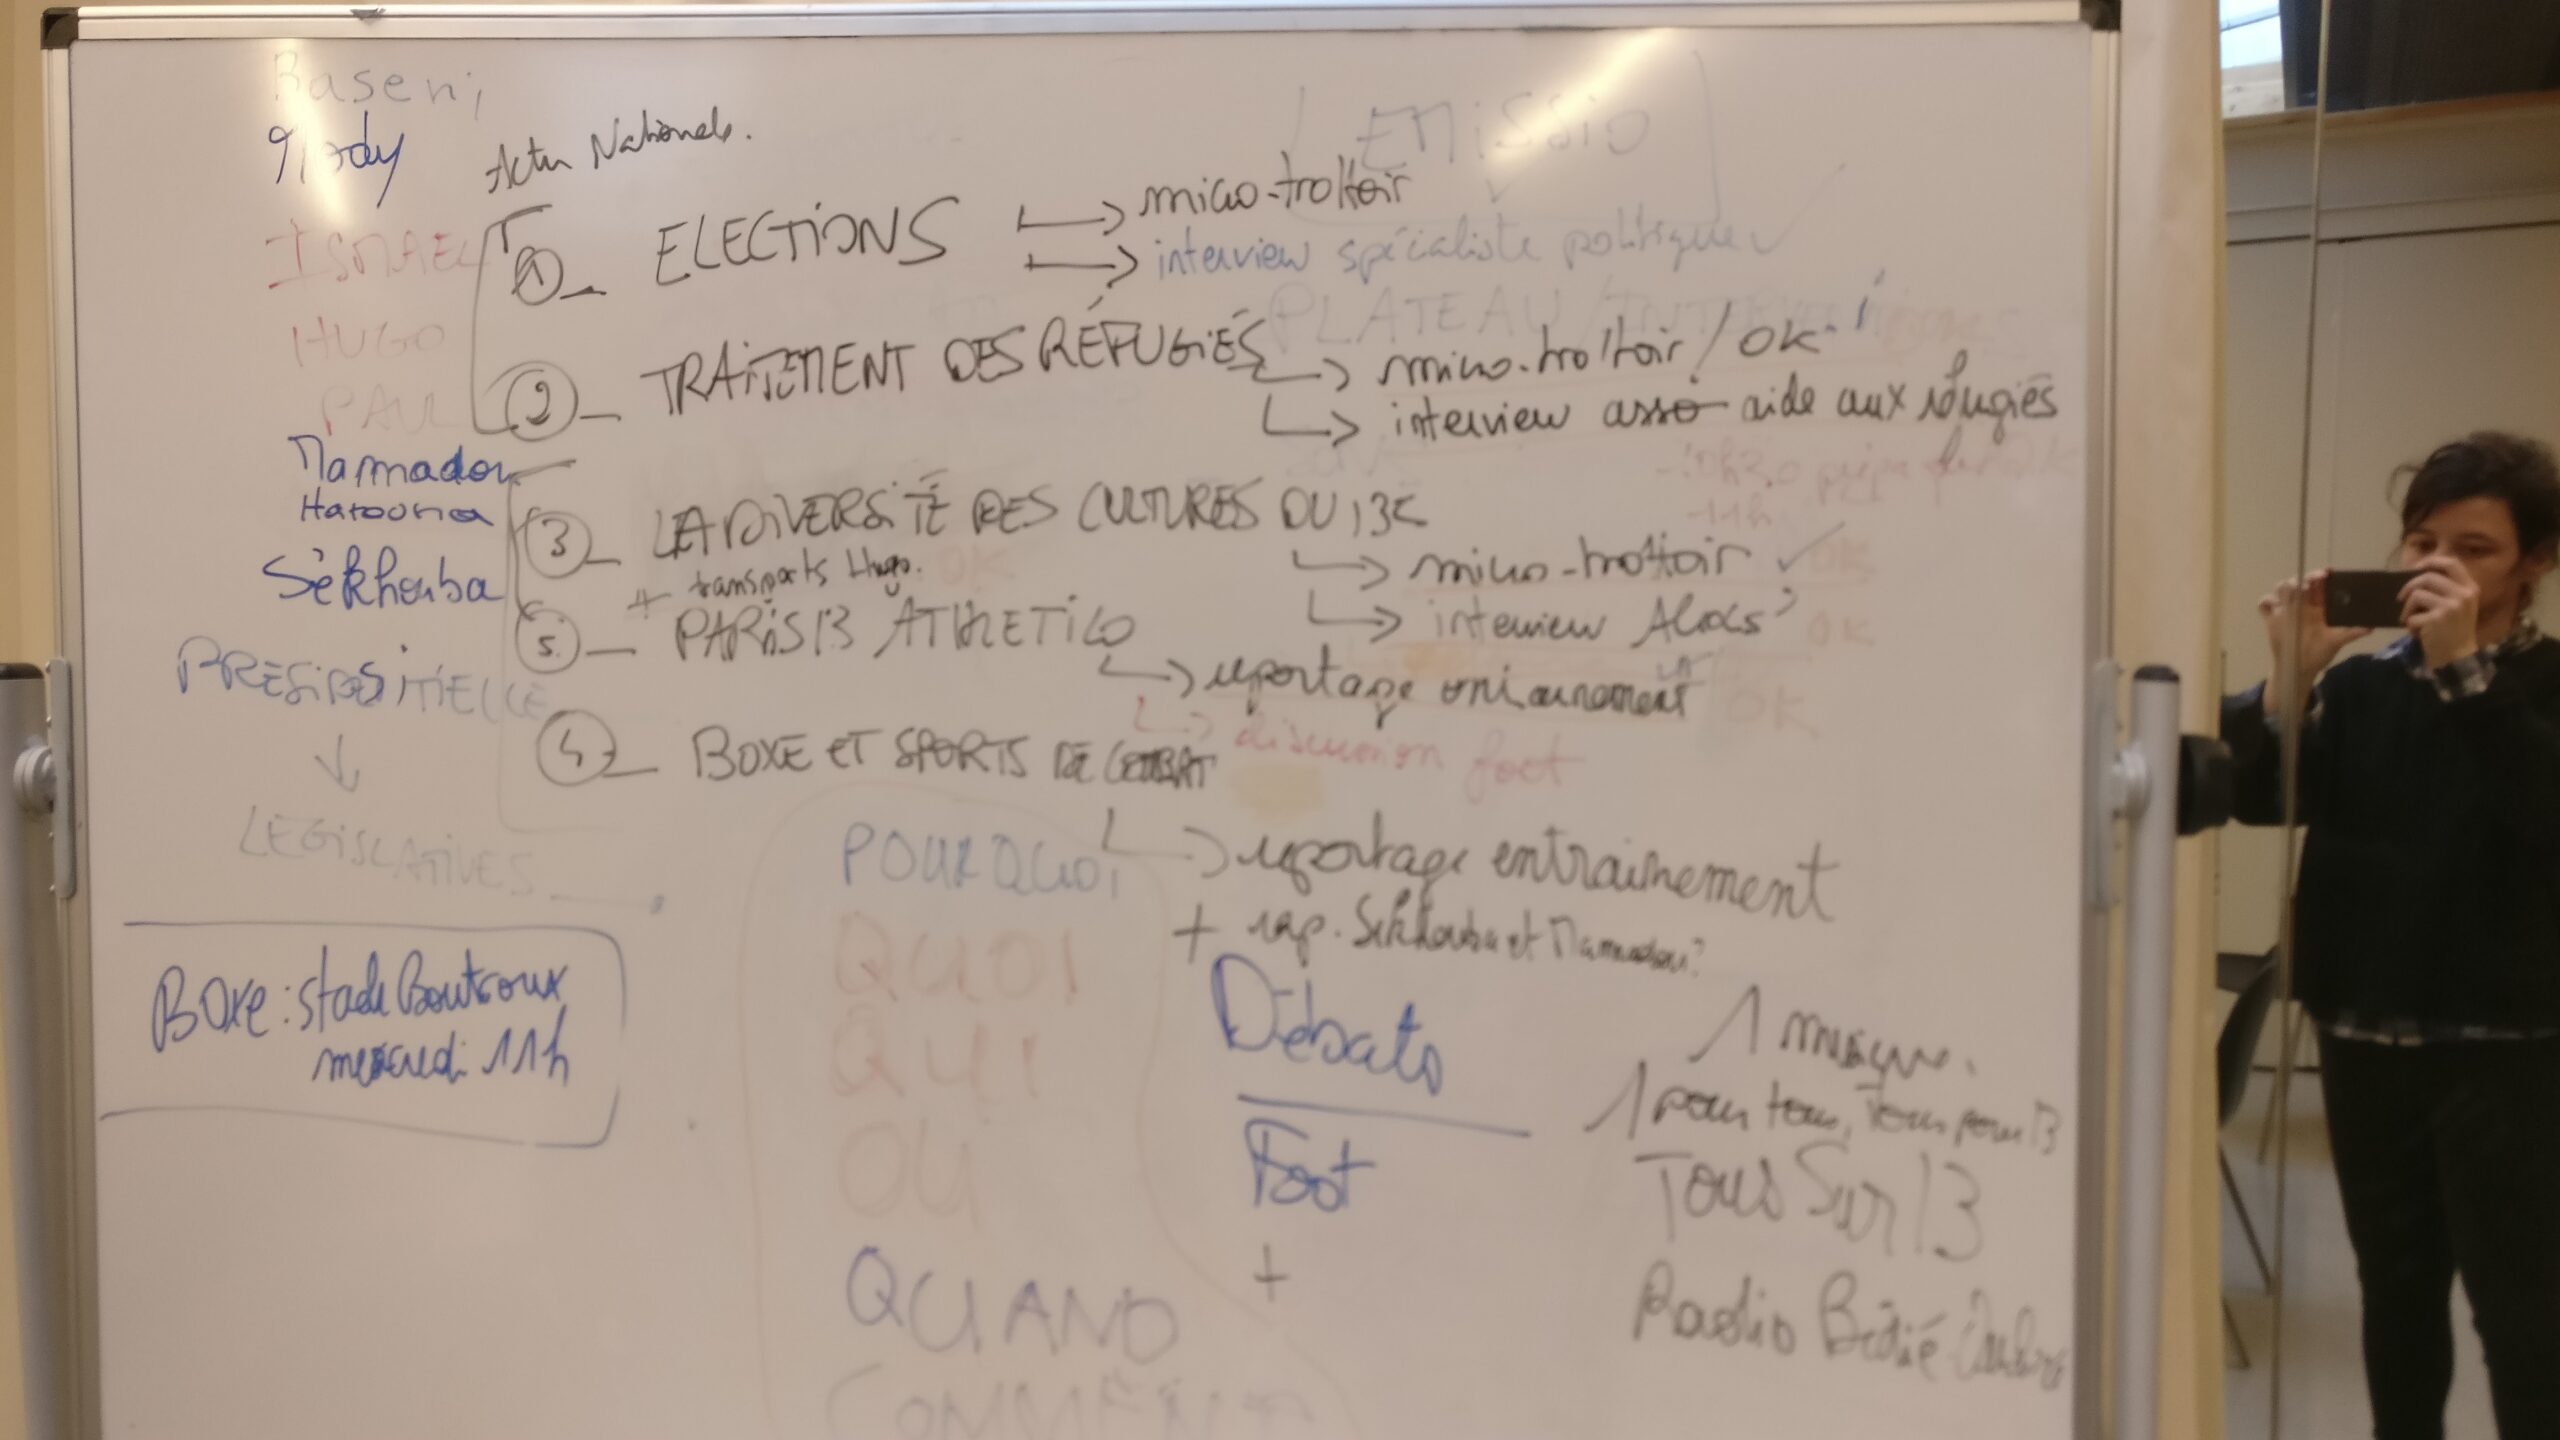 Baseni
Mady
Actu Nationale.
EMISSIO
ISMAEL
1 ELECTIONS
micro-trottoir
interview spécialiste politique
HUGO
PLATEAU /
2 TRAITEMENT DES RÉFUGIÉS
micro-trottoir / OK
interview asso aide aux réfugiés
PAUL
Mammadou
Harouna
Sékhouba
3 LA DIVERSITÉ DES CULTURES DU 13E
micro-trottoir OK
interview OK
+ transports Hugo. OK
5. PARIS 13 ATHLETICO
reportage OK
discussion foot
4 BOXE ET SPORTS DE COMBAT
reportage entrainement
+ Sékhouba et Mammadou?
PRESIDENTIELLE
LEGISLATIVES
BOXE : stade Boutroux
mercredi 11h
POURQUOI
QUOI
QUI
OU
QUAND
COMMENT
Débats
Foot
+
1 musique.
1 pour tous, Tous pour 13
Tous Sur 13
Radio Bédié